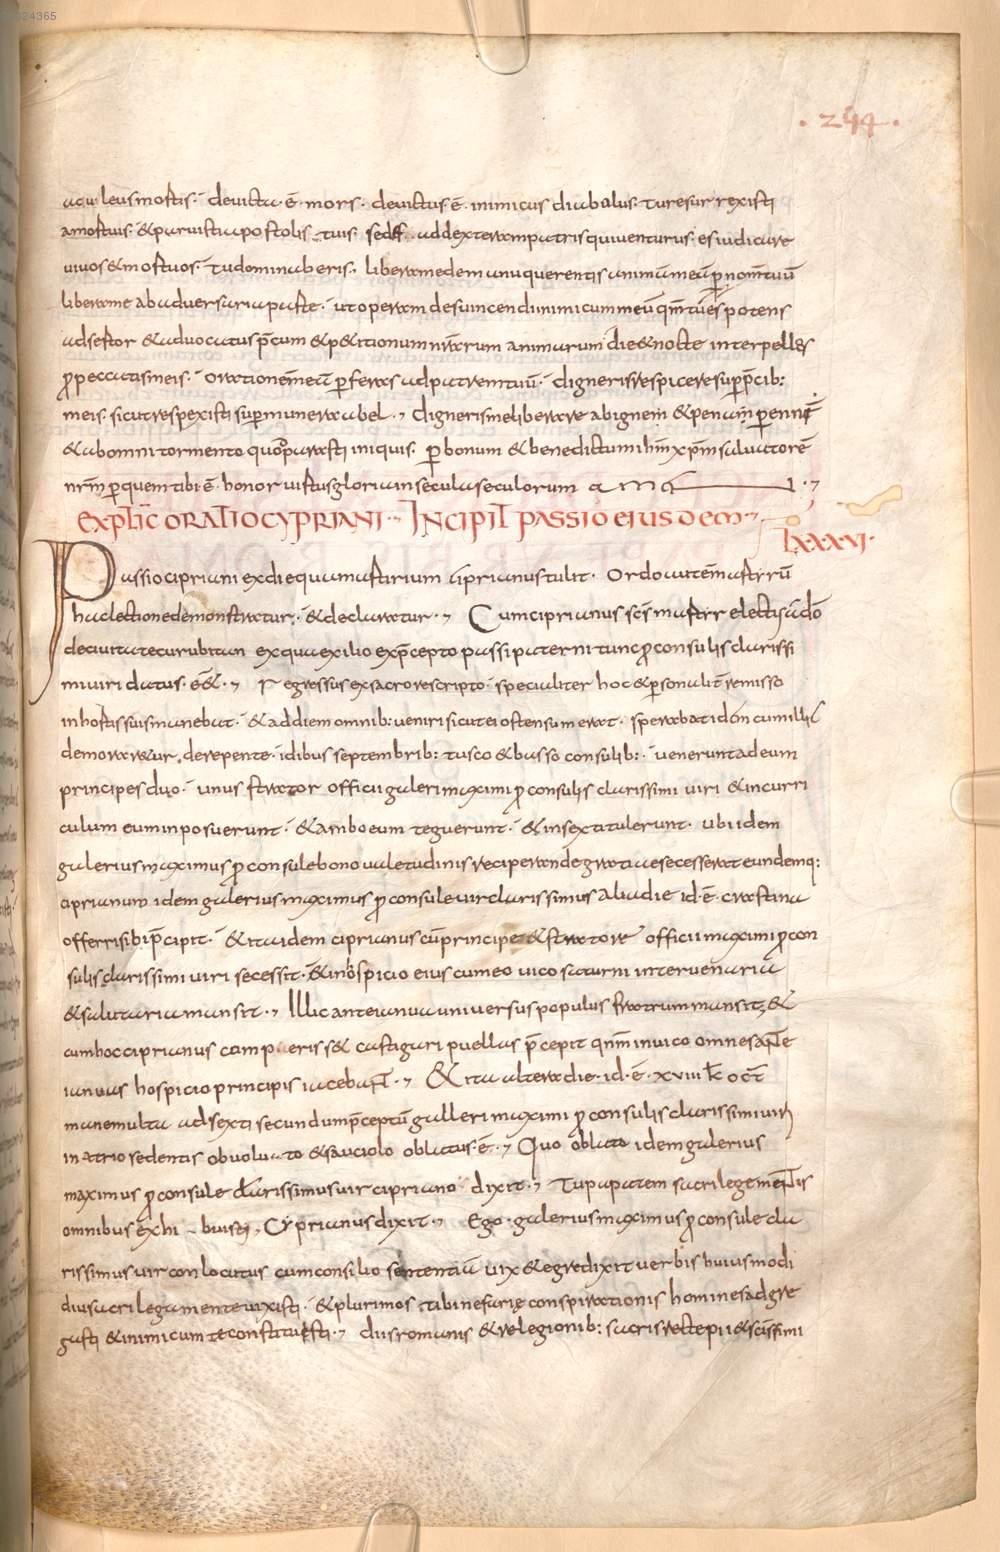 ·244·
aculeus mortis· devicta· ē· mors· devictus ē· inimicus diabolus· tu resurrexisti
a mortuis· & paruisti apostolis tuis· sedes ad dexteram patris qui venturus es iudicare
vivos & mortuos· tu dominaberis· libera me de manu querentis animā meā p̄ nom̄ tuū
libera me ab adversaria parte· ut operam des vincendi inimicum meū qm̄ tu es potens
adsertor & advocatus p̄cum & p&itionum nr̄arum animarum die & nocte interpelles
ꝓ peccatis meis· orationē meā p̄feras ad patrem tuū· digneris respicere sup̄ p̄cib:
meis· sicut respexisti sup̄ munera abel· digneris me liberare ab ignem & penam p̄enni
& ab omni tormento quo p̄parasti iniquis· p̄ bonum & benedictum ihm̄ xp̄m salvatorē
nr̄m p̄ quem tibi ē· honor virtus gloria in secula seculorum amen
explic oratio cypriani·· Incipit passio eiusdem·
lxxxvi·
Passio cipriani ex die qua martirium ciprianus tulit· Ordo autē martyrū
hac lectione demonstratur· & declaratur· Cum ciprianus scs̄ martyr electus a dō
de civitate curubitan ex qua exilio ex p̄cepto paterni tunc ꝓconsulis clarissi
mi viri datus· ēē&· Regressus ex sacro rescripto· specialiter hoc & p̄sonalit̄ remisso
in hortis suis manebat· & ad diem omnib: veniri sicut ei ostensum erat· sperabat
demoraretur· derepente· idibus septembrib: tusco & basso consulib:· venerunt ad eum
principes duo· unus strator officii galeri maximi ꝓconsulis clarissimi viri & in curri
culum eum inposuerunt· & ambo eum teguerunt· & in sexti tulerunt· ubi idem
galerius maximus ꝓconsule bono valetudinis reciperande gratia secesserat eundemq:
ciprianum idem galerius maximus ꝓconsule vir clarissimus alia die id· ē· crastina
offerri sibi p̄cipit· & ita idem ciprianus cū principe & stratore officii maximi ꝓcon
sulis clarissimi viri secessit· & in hospicio eius cum eo vico saturni inter venaria
& salutaria mansit· Illic ante ianua universus populus fratrum mansit· &
cum hoc ciprianus castigari puellas p̄cepit qnm̄ in vico omnes ante
ianuas hospicio principis iacebant· & ita altera die· id· ē· xviii kl oct
mane multa ad sexti secundum p̄ceptū galleri maximi ꝓconsulis clarissimi viri
in atrio sedentis obvoluto & sauciolo oblatus· ē· Quo oblato idem galerius
maximus ꝓconsule clarissimus vir cipriano dixit· Tu papatem sacrilege mentis
omnibus exhibuisti· Cyprianus dixit· Ego· galerius maximus ꝓconsule cla
rissimus vir conlocutus cum consilio sententiā vix & egre dixit verbis huiusmodi
diu sacrilega mente vixisti· & plurimos tibi nefarię conspirationis homines adgre
gasti & inimicum te constituisti· diis romanis & relegionib: sacris recte pii & scissimi